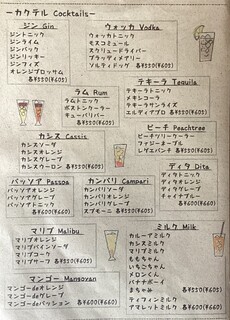 －カクテル Cocktails－
ジン Gin
ジントニック
ジンライム
ジンバック
ジンリッキー
ジンソーダ
オレンジブロッサム
各¥550(¥605)
ウォッカ Vodka
ウォッカトニック
モスコミュール
スクリュードライバー
ブラッディメアリー
ソルティドッグ 各¥550(¥605)
テキーラ Tequila
テキーラトニック
メキシコーラ
テキーラサンライズ
エルディアブロ 各¥550(¥605)
ラム Rum
ラムトニック
ボストンクーラー
キューバリバー
各¥550(¥605)
カシス Cassis
カシスソーダ
カシスオレンジ
カシスグレープ
カシスウーロン 各¥550(¥605)
ピーチ Peachtree
ピーチツリークーラー
ファジーネーブル
レゲエパンチ 各¥550(¥605)
ディタ Dita
ディタトニック
ディタオレンジ
ディタグレープ
チャイナブルー
各¥600(¥660)
パッソア Passoa
パッソアオレンジ
パッソアグレープ
パッソアトニック
各¥600(¥660)
カンパリ Campari
カンパリソーダ
カンパリオレンジ
カンパリグレープ
スプモーニ 各¥550(¥605)
マリブ Malibu
マリブオレンジ
マリブパインソーダ
マリブコーク
マリブサーフ 各¥550(¥605)
ミルク Milk
カルーアミルク
カシスミルク
マリブミルク
ももちち
いちごちち
メロンくん
バナナボーイ
まちゃみ 各¥550(¥605)
ティフィンミルク
アマレットミルク 各¥600(¥660)
マンゴー Mangoyan
マンゴーdeオレンジ
マンゴーdeグレープ
マンゴーdeパッション 各¥600(¥660)